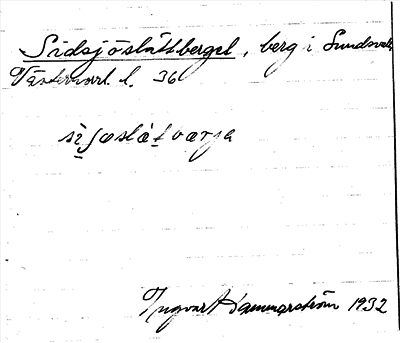 Sidsjöslåttberget, berg i Sundsvall
Västernorrl. l. 36
Ingvar Hammarström 1932